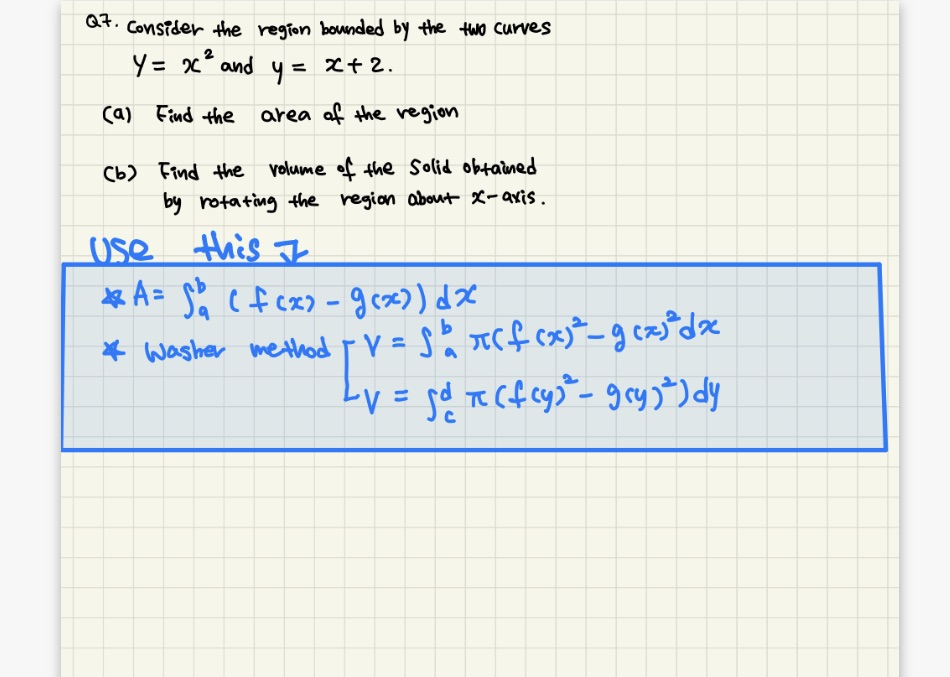 Q7. Consider the region bounded by the two curves
y = x² and y = x + 2.
(a) Find the area of the region
(b) Find the volume of the solid obtained
by rotating the region about x-axis.
Use this ↓
* A = ∫ₐᵇ (f(x) - g(x)) dx
* Washer method V = ∫ₐᵇ π(f(x)² - g(x)² dx
V = ∫_c^d π(f(y)² - g(y)²) dy